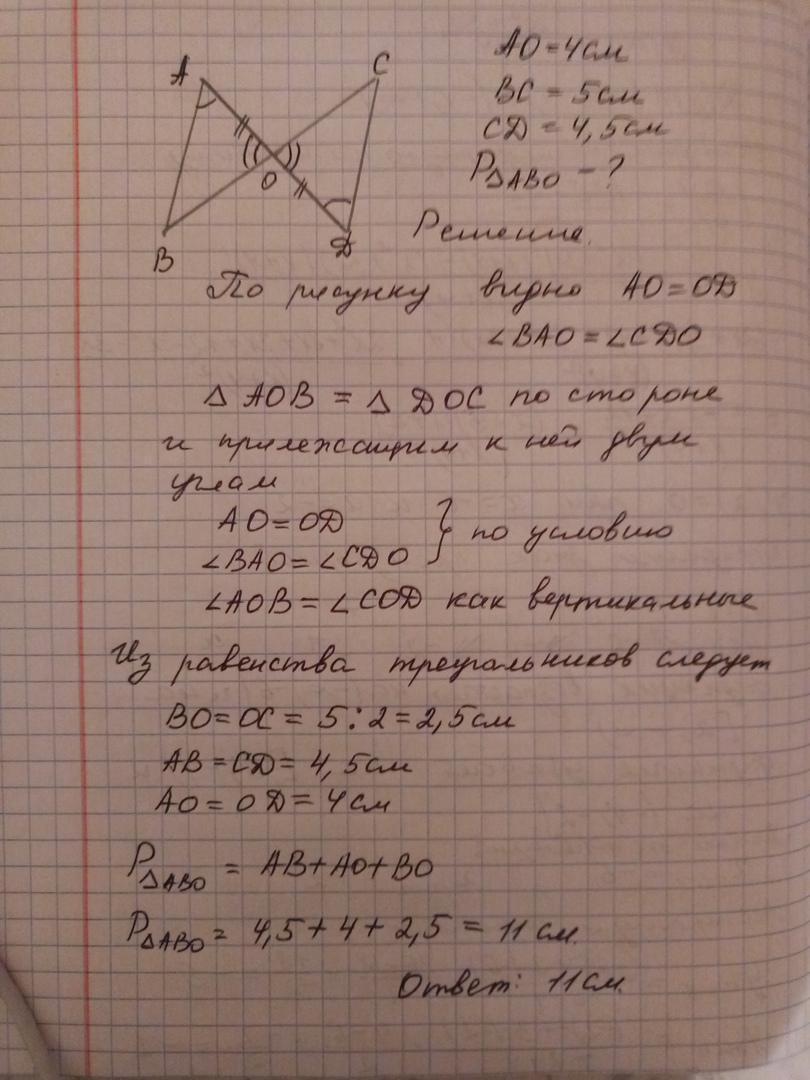 A
C
O
B
D
AO = 4 см
BC = 5 см
CD = 4,5 см
P△ABO - ?
Решение.
По рисунку видно AO = OD
∠BAO = ∠CDO
△ AOB = △ DOC по стороне
и прилежащим к ней двум
углам
AO = OD
∠BAO = ∠CDO } по условию
∠AOB = ∠COD как вертикальные
Из равенства треугольников следует
BO = OC = 5 : 2 = 2,5 см
AB = CD = 4,5 см
AO = OD = 4 см
P△ABO = AB + AO + BO
P△ABO = 4,5 + 4 + 2,5 = 11 см.
Ответ: 11 см.